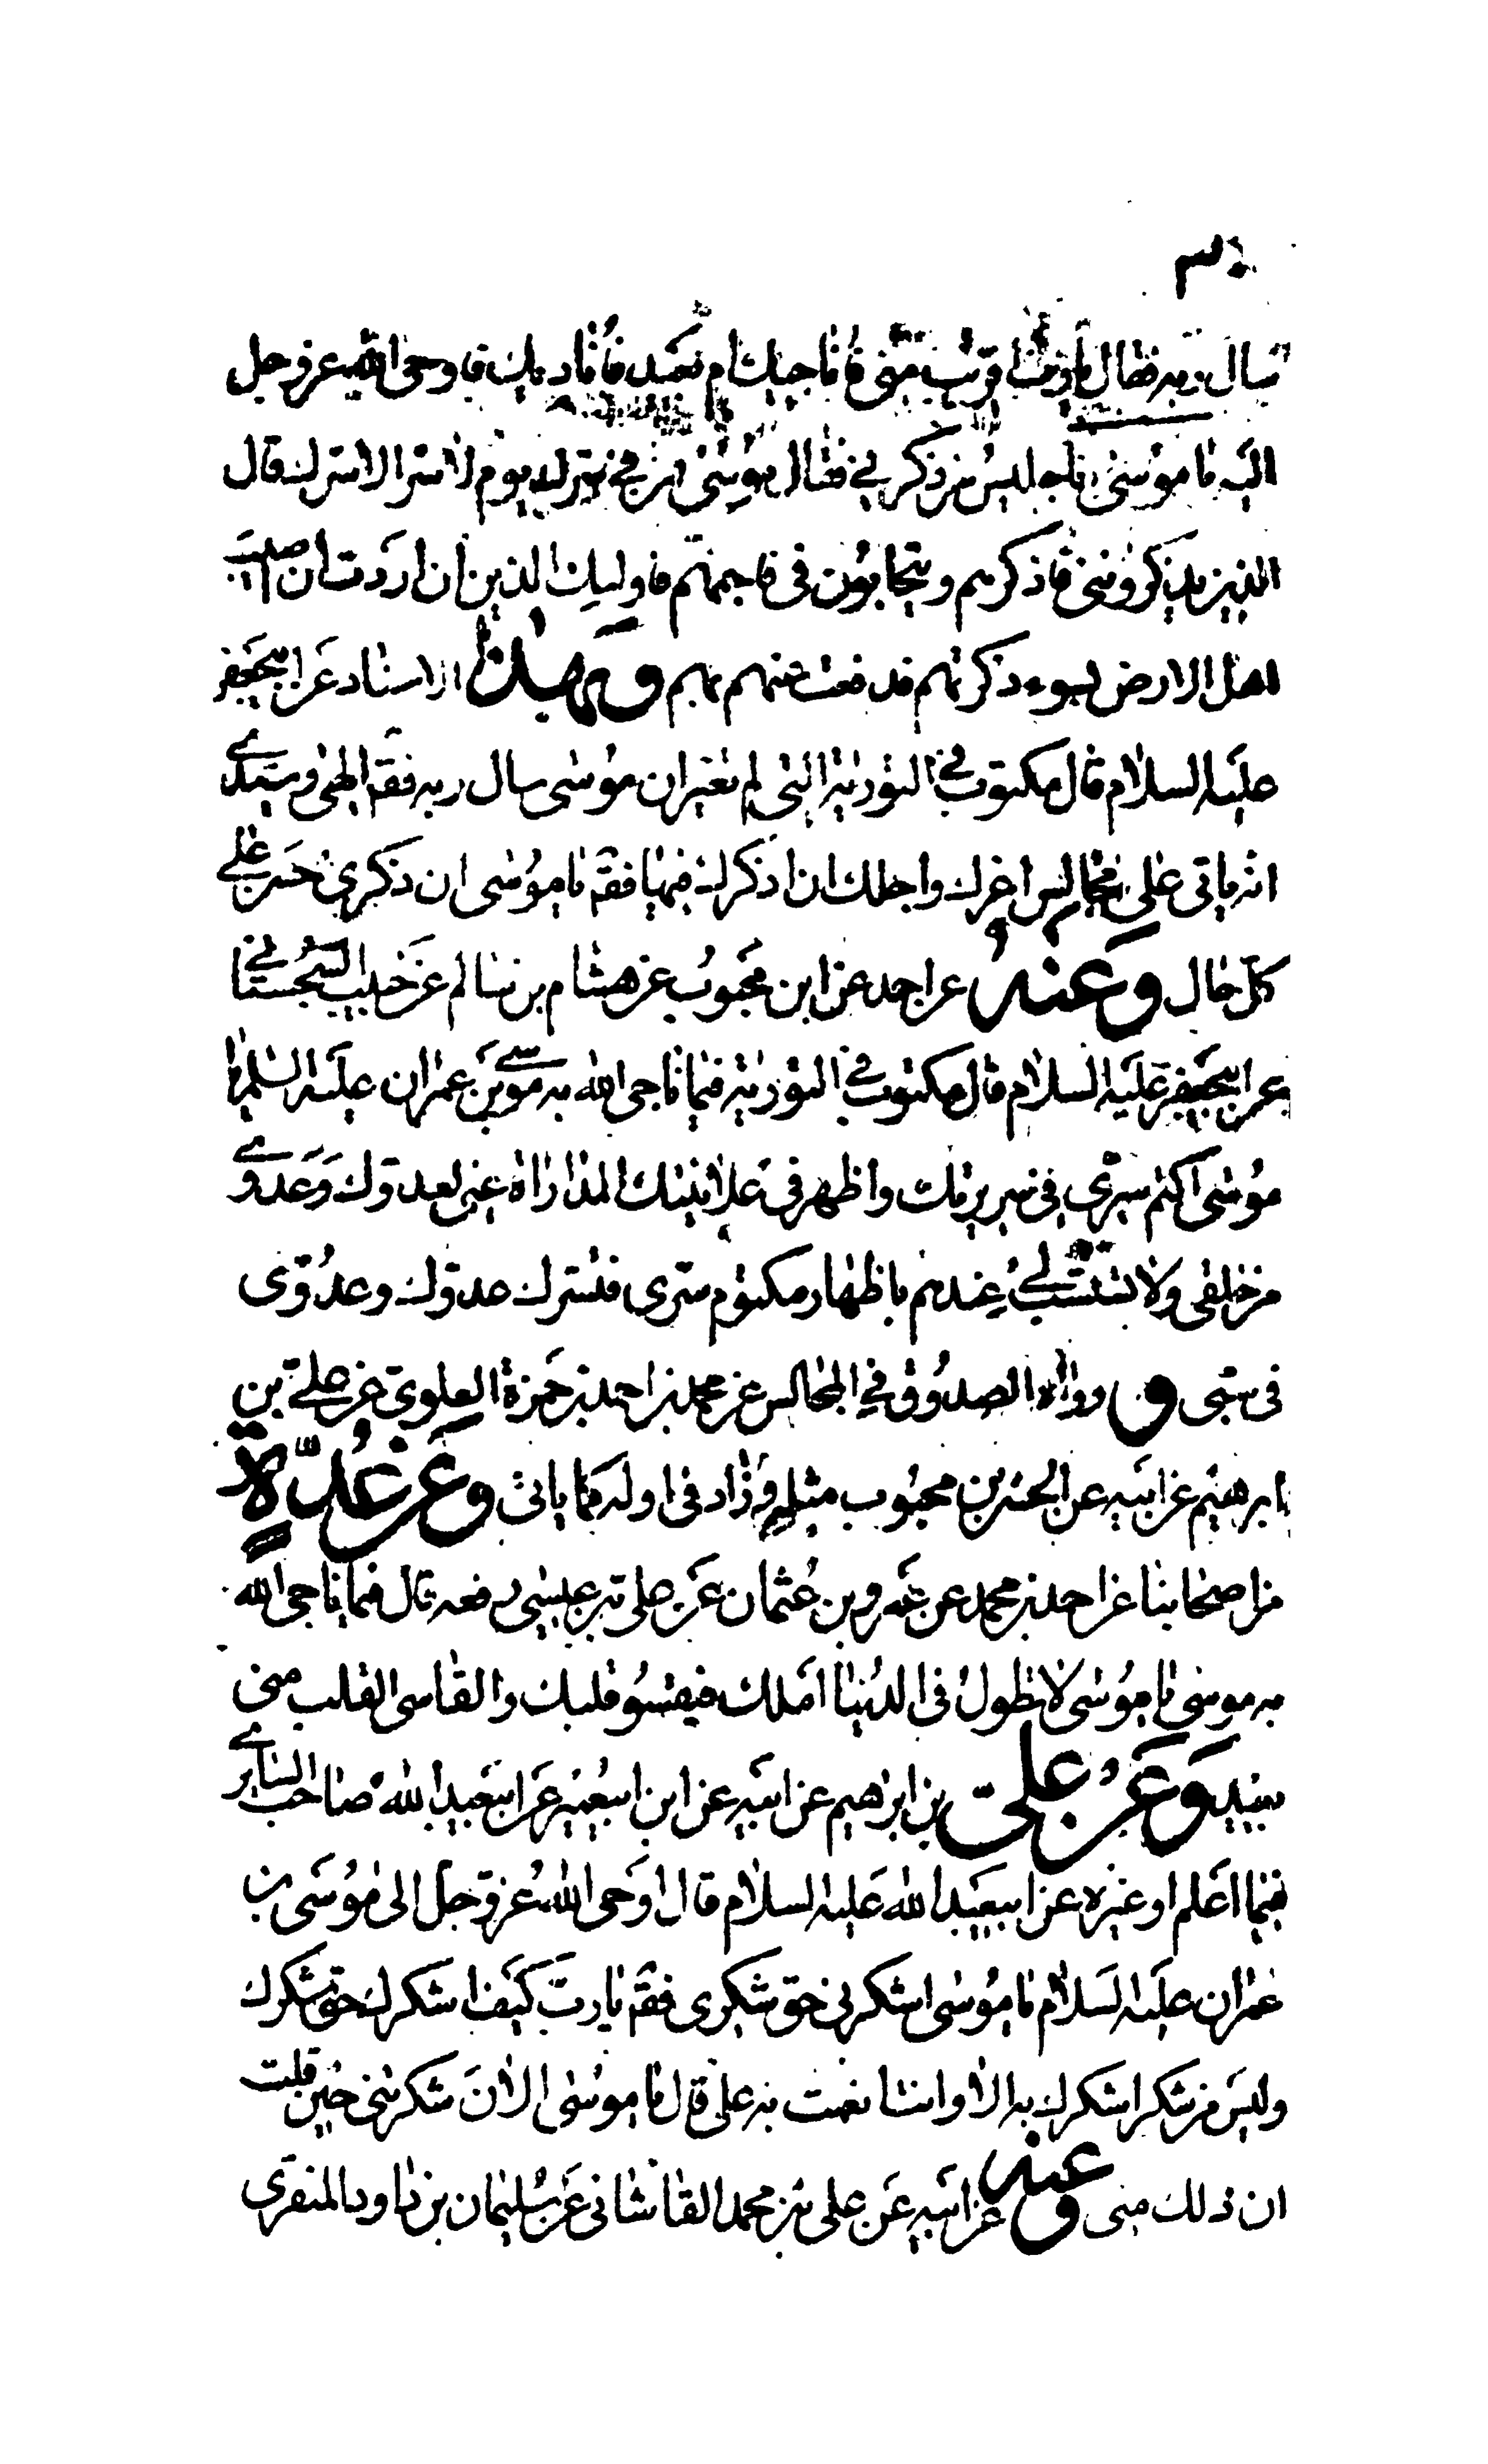 سال ربه فقال يا رب اقريب انت مني فاناجيك ام بعيد فاناديك فاوحى الله عز وجل
اليه يا موسى انا جليس من ذكرني فقال موسى فمن في سترك يوم لا ستر الا سترك قال
الذين يذكرونني فاذكرهم ويتحابون في فاحبهم فاولئك الذين ان اردت ان اصيب
اهل الارض بسوء ذكرتهم فدفعت عنهم بهم وبهذا الاسناد عن ابيجعفر
عليه السلام قال مكتوب في التورية التي لم تغير ان موسى سال ربه فقة الهي وسيدي
انه ياتي علي مجالس اعزك واجلك ان اذكرك فيها فقة يا موسى ان ذكري حسن على
كل حال وعنه عن احمد عن ابن محبوب عن هشام بن سالم عن حبيب السجستاني
عن ابيجعفر عليه السلام قال مكتوب في التورية فيما ناجى الله به موسى بن عمران عليه السلم يا
موسى اكتم سري في سريرتك واظهر في علانيتك المداراة عني لعدوك وعدوي
من خلقي ولا تستسب لي عندهم باظهار مكتوم سري فتشرك عدوك وعدوي
في سبي و رواه الصدوق في المجالس عن محمد بن احمد بن حمزة العلوي عن علي بن
ابرهيم عن ابيه عن الحسن بن محبوب مثله وزاد في اوله كما ياتي وعن عدة
من اصحابنا عن احمد بن محمد عن عمرو بن عثمان عن علي بن عيسى رفعه قال فيما ناجى الله
به موسى يا موسى لا تطول في الدنيا املك فيقسو قلبك والقاسي القلب مني
بعيد وعن علي بن ابرهيم عن ابيه عن ابن ابيعمير عن ابيعبد الله صاحب السابري
فيما اعلم او غيره عن ابيعبد الله عليه السلام قال اوحى الله عز وجل الى موسى بن
عمران عليه السلام يا موسى اشكرني حق شكري فقة يا رب كيف اشكرك حق شكرك
وليس من شكر اشكرك به الا وانت انعمت به علي قال يا موسى الان شكرتني حين علمت
ان ذلك مني وعنه عن ابيه عن علي بن محمد القاشاني عن سليمان بن داود المنقري